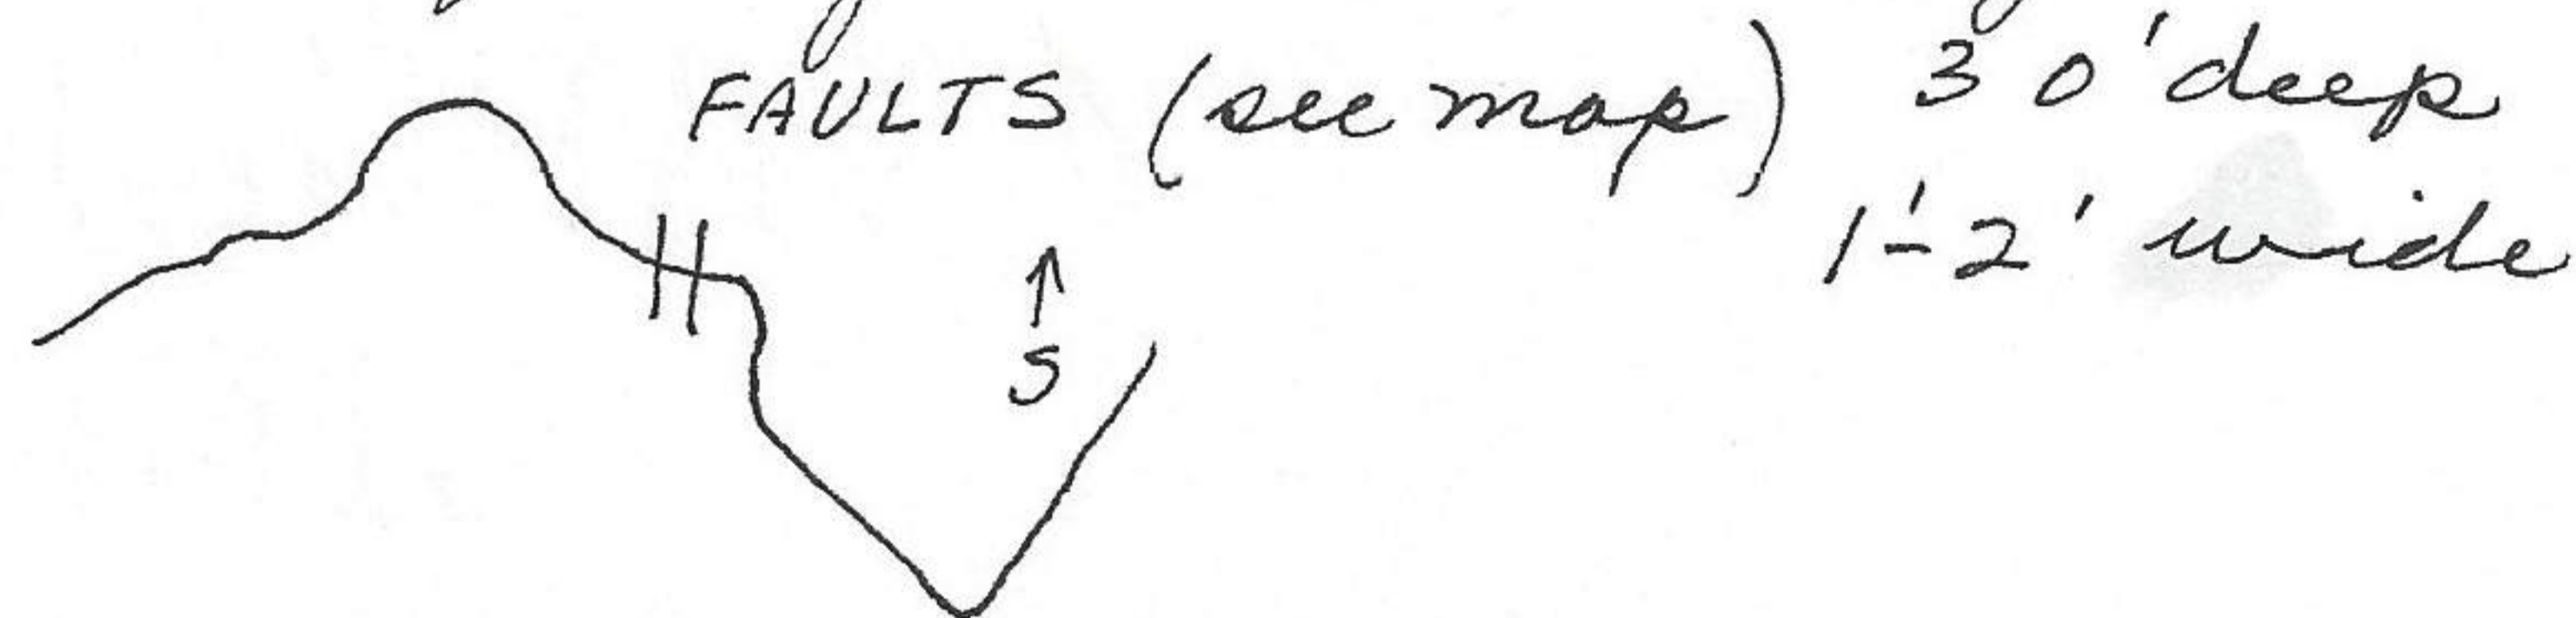 FAULTS (see map) 30' deep
1'-2' wide
↑
S